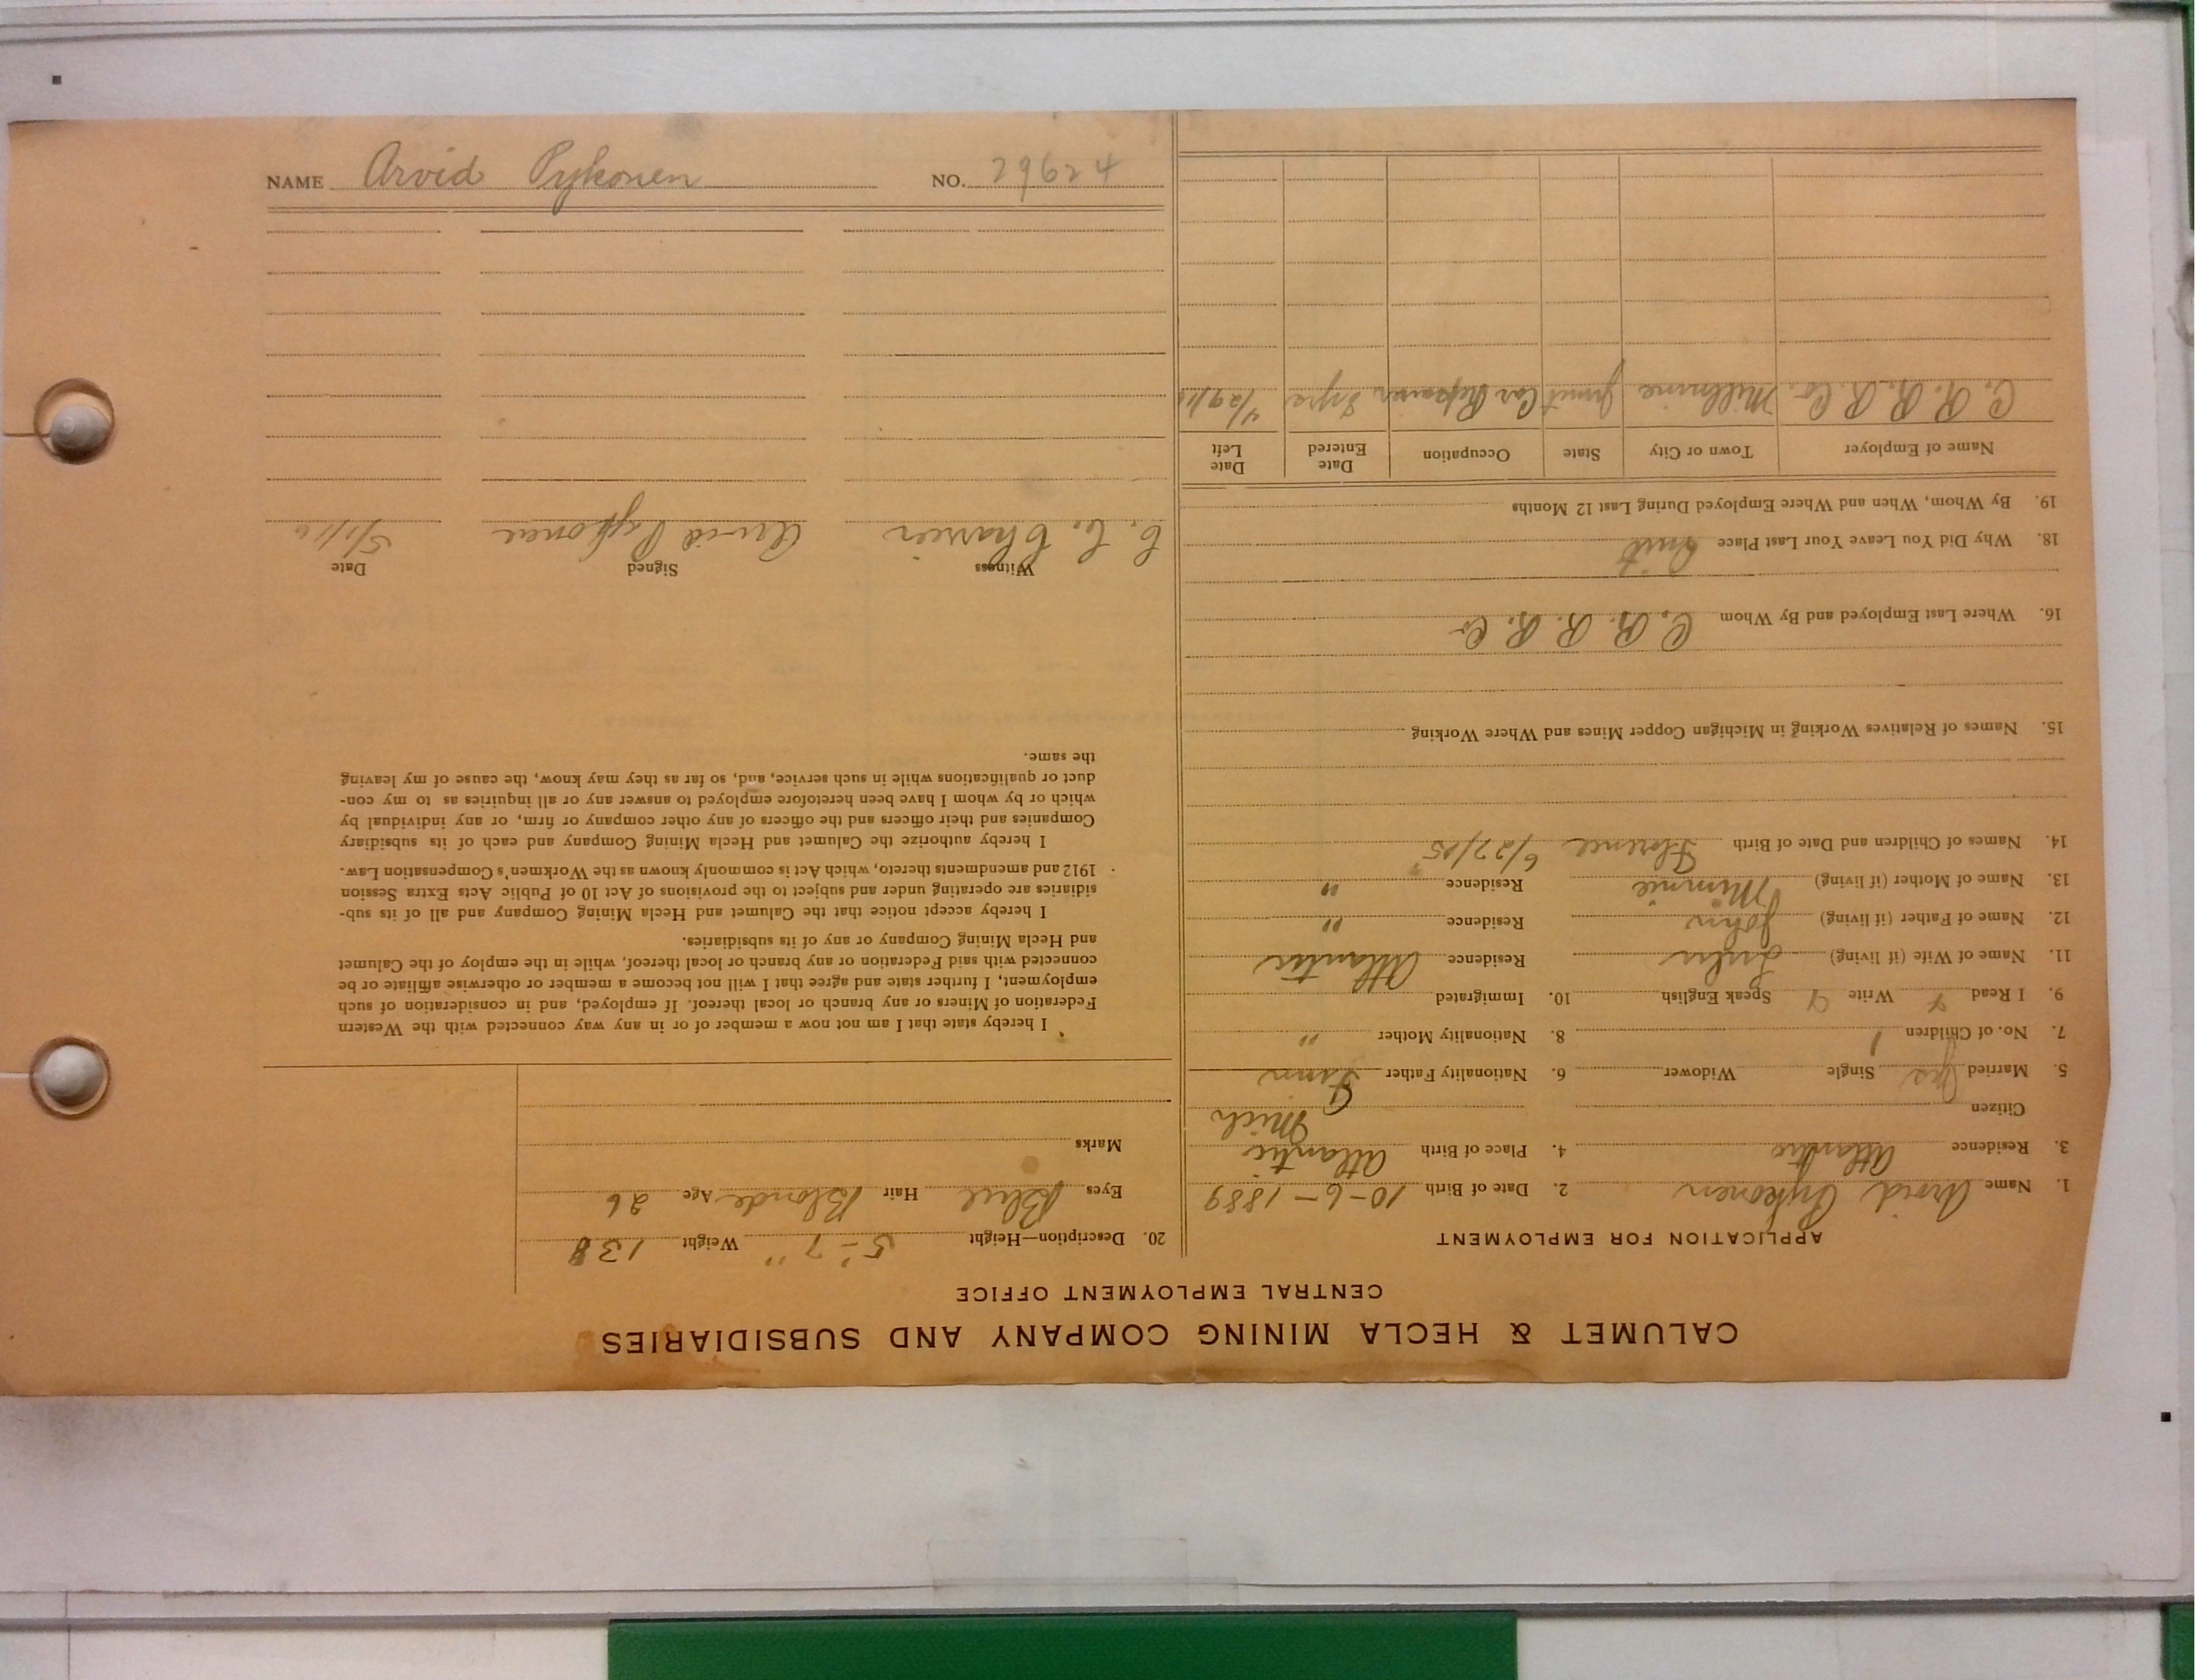 CALUMET & HECLA MINING COMPANY AND SUBSIDIARIES
CENTRAL EMPLOYMENT OFFICE
APPLICATION FOR EMPLOYMENT
1. Name Arvid Pykonen 2. Date of Birth 10-6-1889
3. Residence Atlantic 4. Place of Birth Atlantic
Mich
Citizen
5. Married Yes Single Widower 6. Nationality Father Finn
7. No. of Children 1 8. Nationality Mother "
9. I Read Y Write Y Speak English 10. Immigrated
11. Name of Wife (if living) Residence Atlantic
12. Name of Father (if living) John Residence "
13. Name of Mother (if living) Minnie Residence "
14. Names of Children and Date of Birth Florence 6/27/05
15. Names of Relatives Working in Michigan Copper Mines and Where Working
16. Where Last Employed and By Whom C. R. R. R. Co
18. Why Did You Leave Your Last Place Quit
19. By Whom, When and Where Employed During Last 12 Months
Name of Employer Town or City State Occupation Date Entered Date Left
C. R. R. R. Co. Millmine Car Repairer 4/29/16
20. Description—Height 5'-7" Weight 138
Eyes Blue Hair Blonde Age 26
Marks
I hereby state that I am not now a member of or in any way connected with the Western
Federation of Miners or any branch or local thereof. If employed, and in consideration of such
employment, I further state and agree that I will not become a member or otherwise affiliate or be
connected with said Federation or any branch or local thereof, while in the employ of the Calumet
and Hecla Mining Company or any of its subsidiaries.
I hereby accept notice that the Calumet and Hecla Mining Company and all of its sub-
sidiaries are operating under and subject to the provisions of Act 10 of Public Acts Extra Session
1912 and amendments thereto, which Act is commonly known as the Workmen's Compensation Law.
I hereby authorize the Calumet and Hecla Mining Company and each of its subsidiary
Companies and their officers and the officers of any other company or firm, or any individual by
which or by whom I have been heretofore employed to answer any or all inquiries as to my con-
duct or qualifications while in such service, and, so far as they may know, the cause of my leaving
the same.
Witness Signed Date
C. C. Charrier Arvid Pykonen 5/1/16
NAME Arvid Pykonen NO. 29624